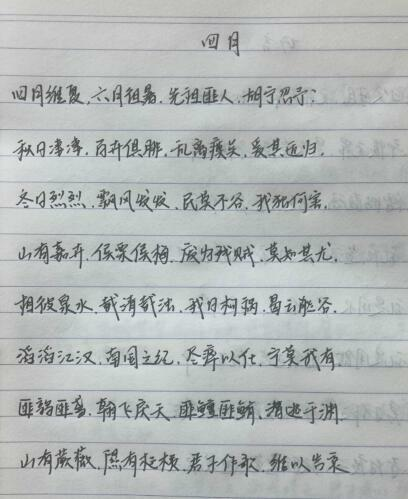 四月
四月维夏,六月徂暑.先祖匪人,胡宁忍予?
秋日凄凄,百卉俱腓.乱离瘼矣,爰其适归.
冬日烈烈,飘风发发.民莫不谷.我独何害.
山有嘉卉.侯栗侯梅.废为残贼,莫知其尤.
相彼泉水,载清载浊.我日构祸,曷云能谷.
滔滔江汉,南国之纪.尽瘁以仕,宁莫我有.
匪鹑匪鸢,翰飞戾天.匪鳣匪鲔,潜逃于渊.
山有蕨薇,隰有杞桋.君子作歌,维以告哀